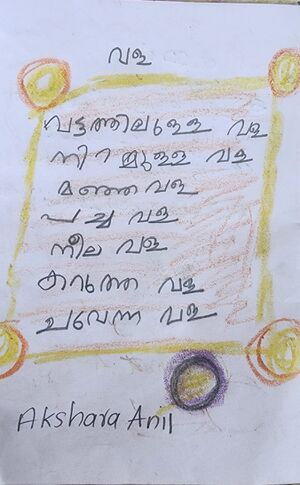 വള
വട്ടത്തിലുള്ള വള
നിറമുള്ള വള
മഞ്ഞ വള
പച്ച വള
നീല വള
കറുത്ത വള
ചുവന്ന വള
Akshara Anil